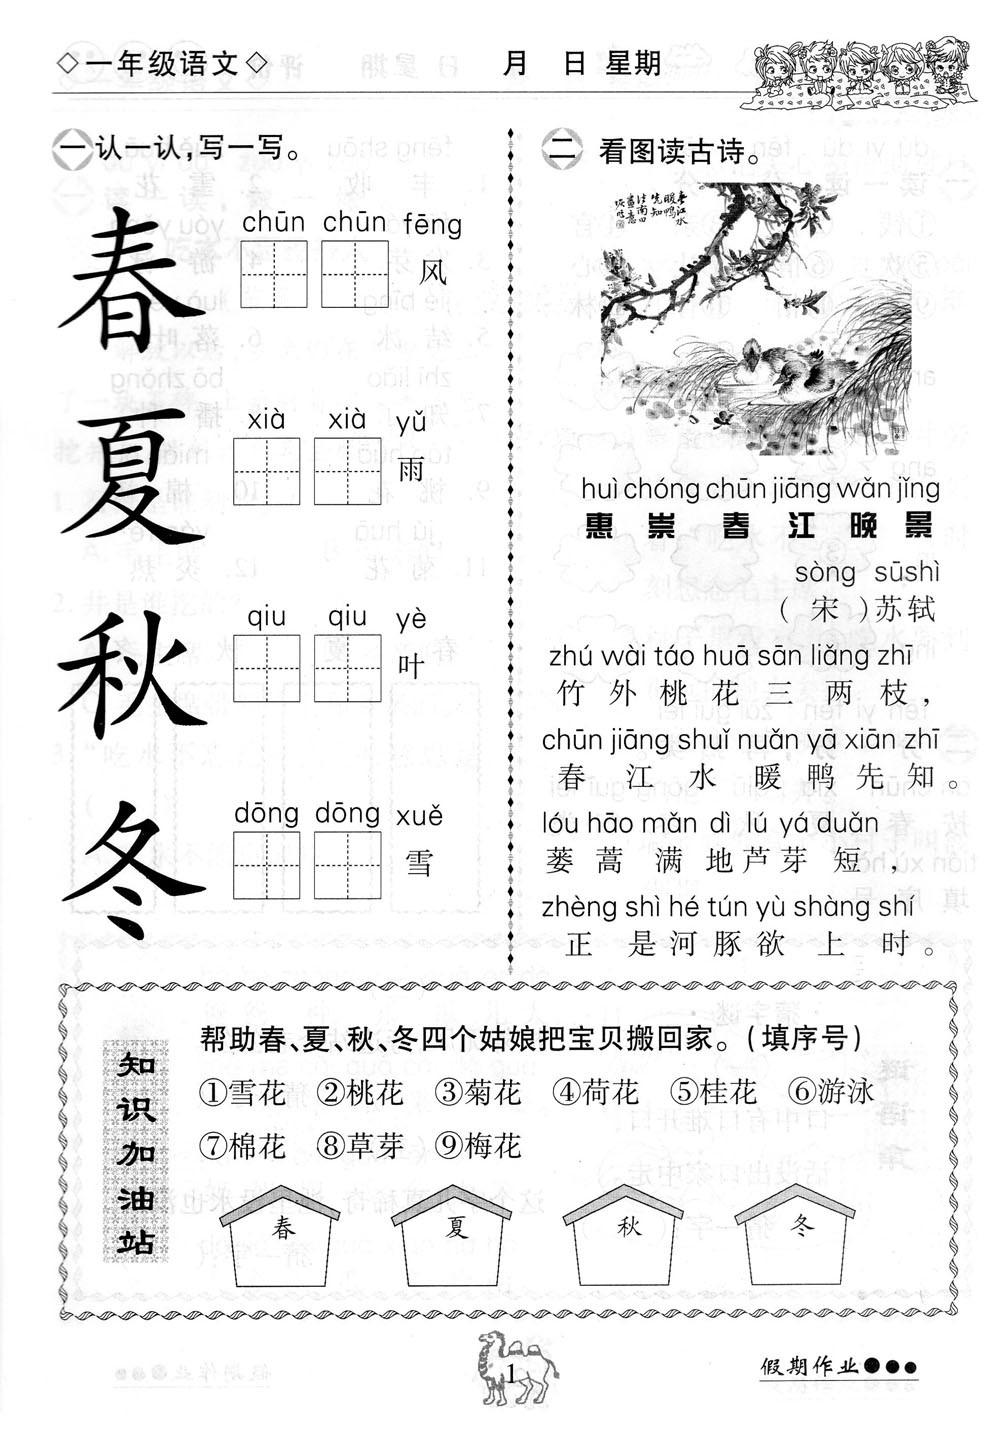 一年级语文 月 日 星期
一 认一认,写一写。
春
chūn chūn fēng
风
夏
xià xià yǔ
雨
秋
qiu qiu yè
叶
冬
dōng dōng xuě
雪
二 看图读古诗。
huì chóng chūn jiāng wǎn jǐng
惠崇春江晚景
sòng sūshì
(宋)苏轼
zhú wài táo huā sān liǎng zhī
竹外桃花三两枝,
chūn jiāng shuǐ nuǎn yā xiān zhī
春江水暖鸭先知。
lóu hāo mǎn dì lú yá duǎn
蒌蒿满地芦芽短,
zhèng shì hé tún yù shàng shí
正是河豚欲上时。
知识加油站
帮助春、夏、秋、冬四个姑娘把宝贝搬回家。(填序号)
①雪花 ②桃花 ③菊花 ④荷花 ⑤桂花 ⑥游泳
⑦棉花 ⑧草芽 ⑨梅花
春 夏 秋 冬
1
假期作业